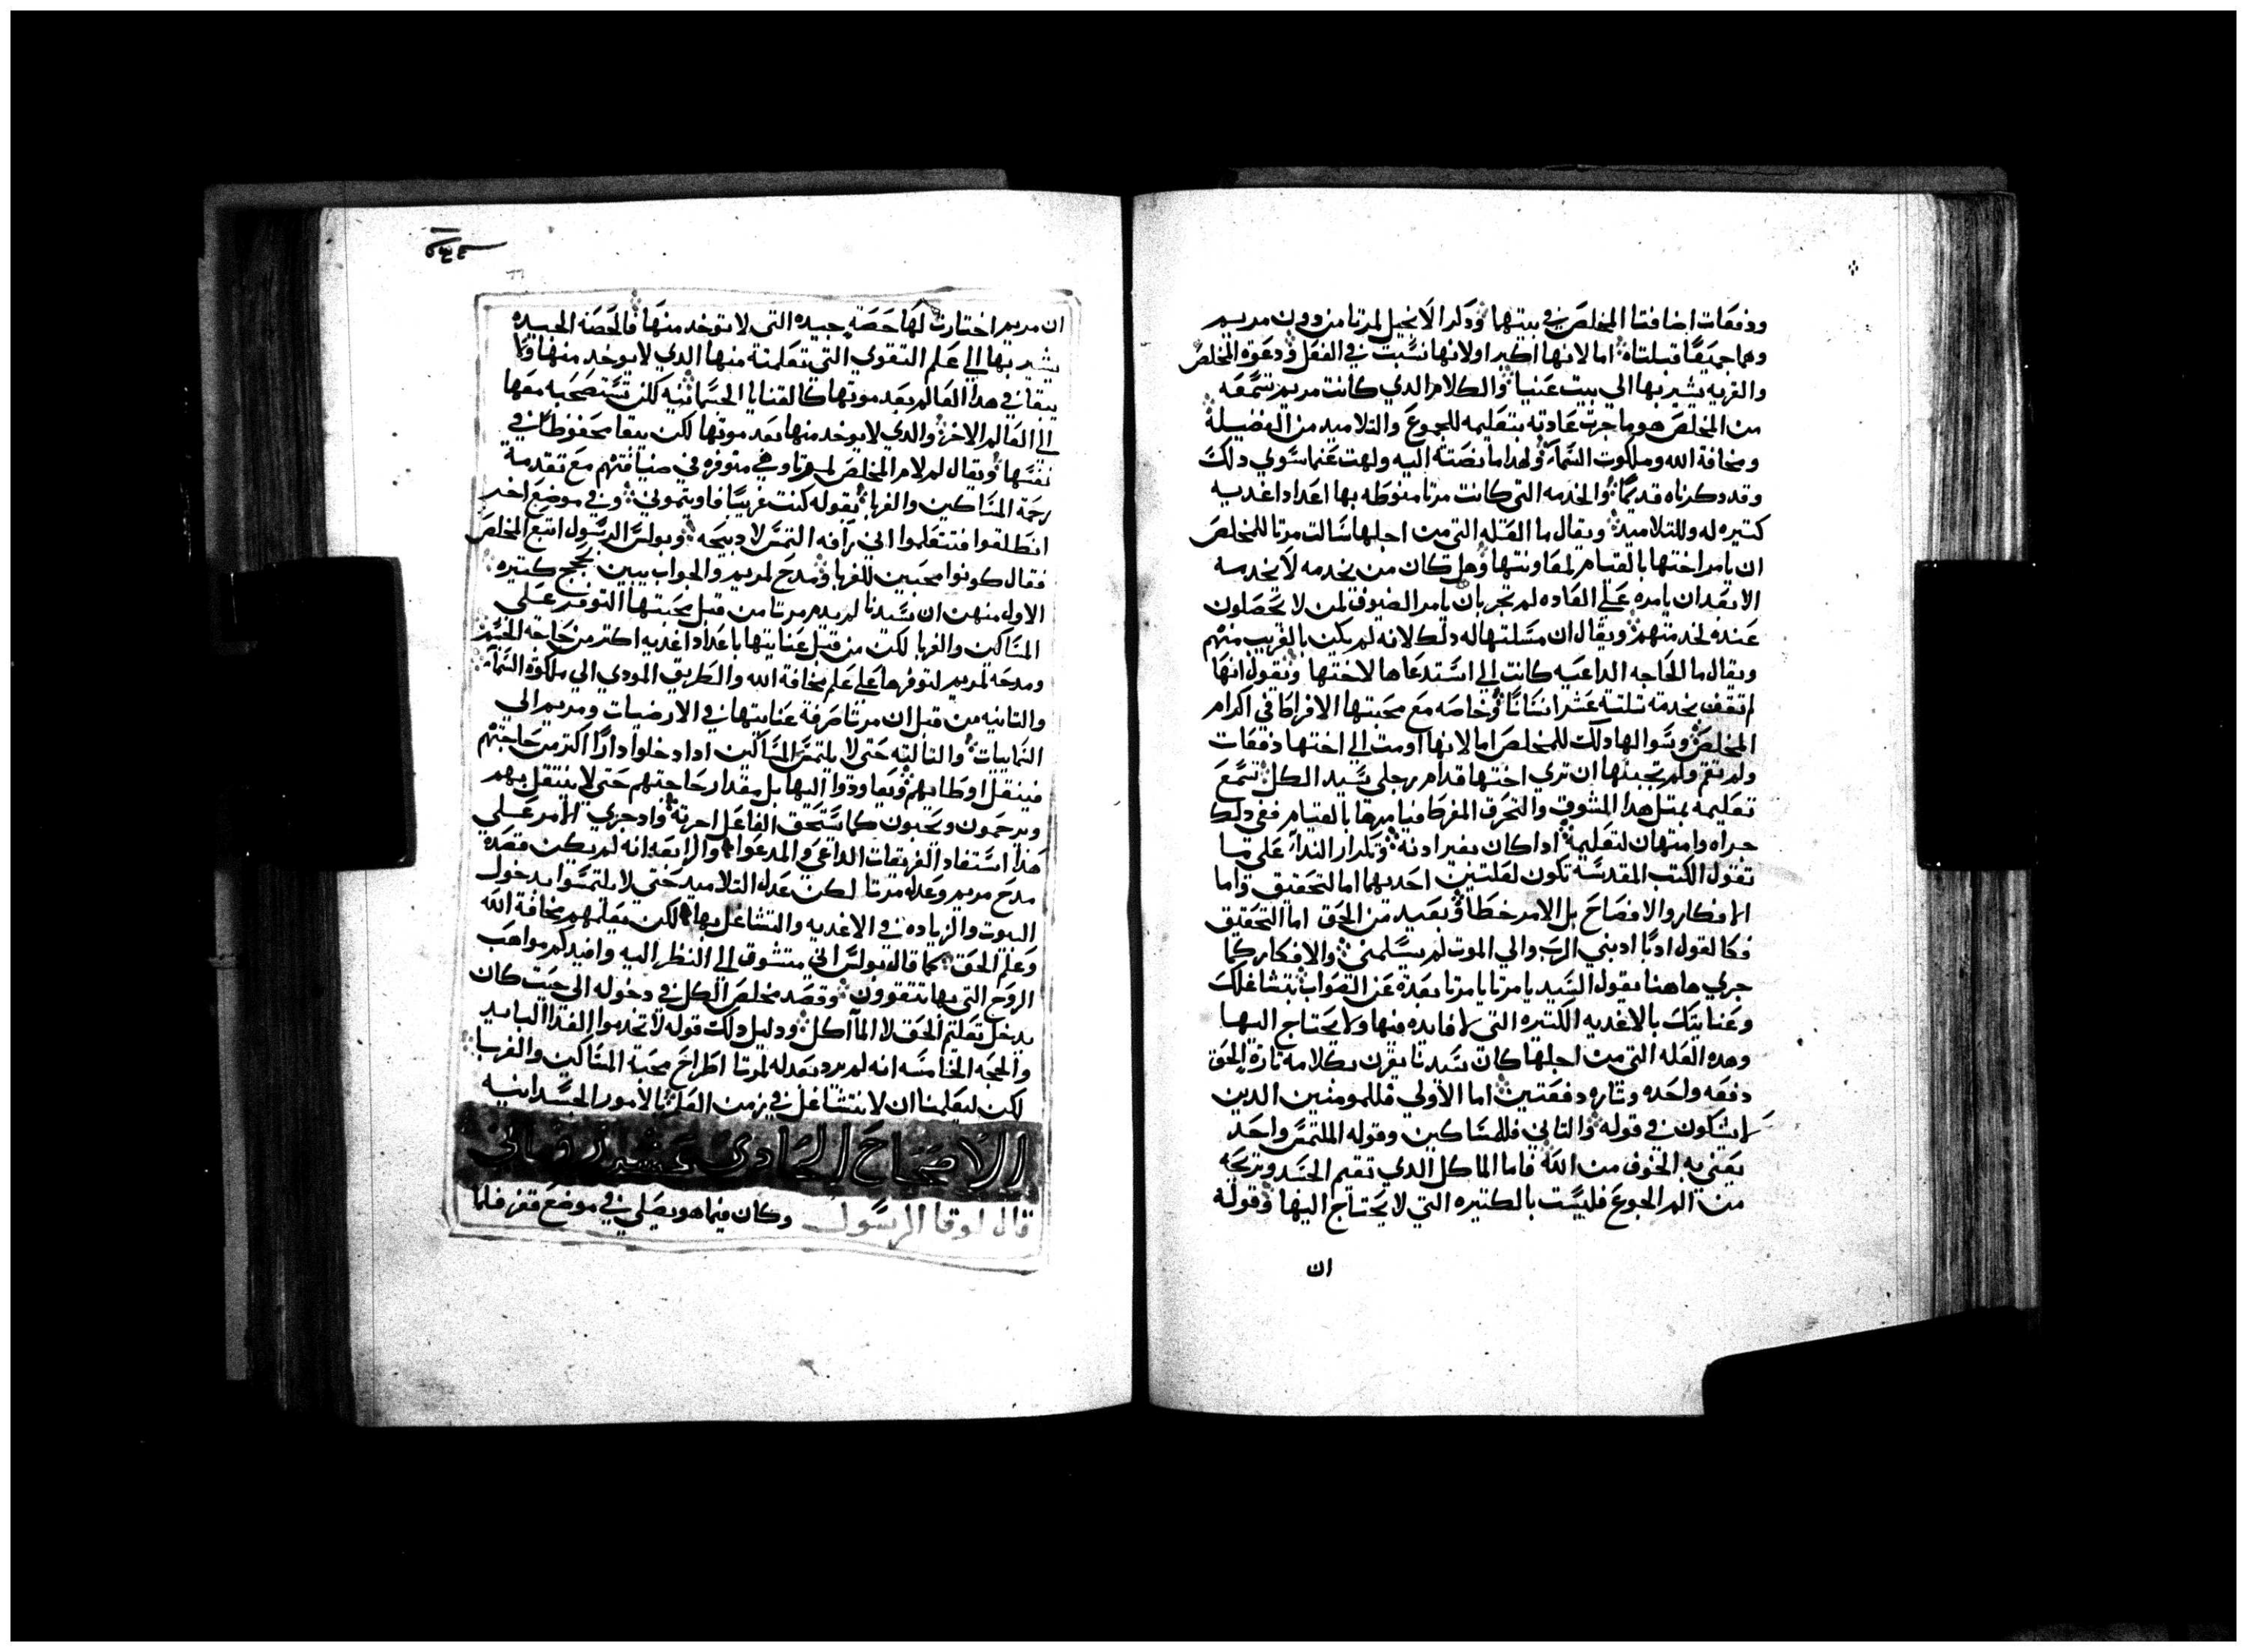 ودفعات اضافتا المخلص في بيتها ودكر الانجيل لمرتا من دون مريم
وهما جميعًا قبلتاه اما لانها اكبر اولانها نسبت في الفعل ودعوة المخلص
والقريه يشير بها الي بيت عنيا والكلام الدي كانت مريم تسمعه
من المخلص هو ما جرت عادته بتعليمه للجموع والتلاميد من الفضيلة
ومخافة الله وملكوت السماء ولهدا ما نصتة اليه ولهت عما سوي دلك
وقد دكرناه قديمًا والخدمه التي كانت مرتا منوطه بها اعداد اغديه
كتيره له وللتلاميد ويقال ما العله التي من اجلها سالت مرتا للمخلص
ان يامر اختها بالقيام لمعاونتها وهل كان من يخدمه لا يخدمه
الا بعد ان يامره علي العاده لم تجر بان يامر الضيوف لمن لا يحصلون
عنده لخدمتهم ويقال ان مسلتها له دلك لانه لم يكن بالقريب منهم
ويقال ما الحاجه الداعيه كانت الي استدعاها لاختها ونقول انها
اتقف بخدمة تلتة عشر انسانًا وخاصه مع محبتها الافراط في اكرام
المخلص وسوالها دلك للمخلص اما لانها اومت الي اختها دفعات
ولم تقم ولم تجبها ان تري اختها قدام رجلي سيد الكل تسمع
تعليمه بمتل هدا التشوق والتحرق المفرط فيامرها بالقيام ففي دلك
جراه وامتهان لتعليمه ادا كان بغير ادنه وتكرار الندآ علي ما
تقول الكتب المقدسه تكون لعلتين احديهما اما لتحقيق واما
الافكار والافصاح بل الامر خطا وبعيد من الحق اما التحقق
فكالقول ادبًا ادبني الرب والي الموت لم يسلمني والافكار كما
جري هاهنا بقول السيد يا مرتا يا مرتا بعدة عن الصواب بتشاغلك
وعنايتك بالاغديه الكتيره التي لا فايده فيها ولا يحتاج اليها
وهده العله التي من اجلها كان سيدنا يقرن بكلامه تارة الحق
دفعه واحده وتاره دفعتين اما الاولي فللمومنين الدين
لا يشكون في قوله والتاني فللشاكين وقوله الملتمس واحد
يعني به الخوف من الله فاما الماكل الدي تقيم الجسد وتريحه
من الم الجوع فليست بالكتيره التي لا يحتاج اليها وقوله
ان
ان مريم اختارت لها حصة جيده التي لا توخد منها فالحصة الجيده
يشير بها الي علم التقوي التي تعلمته منها الدي لا يوخد منها ولا
يبقا في هدا العالم بعد موتها كالقنايا الجسمانيه لكن تستصحبه معها
الي العالم الاخر والدي لا يوخد منها بعد موتها لكن يبقا محفوظًا في
نفسها ويقال لم لام المخلص لمرتا وهي متوفره في ضيافتهم مع تقدمة
رحمة المساكين والغربا بقوله كنت غريبًا فاويتموني وفي موضع اخر
انطلقوا فتعلموا اني رآفه التمس لا دبيحه وبولس الرسول اتبع المخلص
فقال كونوا محبين للغربا ومدح لمريم والجواب يبين بحجج كتيره
الاول منهن ان سيدنا لم يدم مرتا من قبل محبتها التوفر علي
المساكين والغربا لكن من قبل عنايتها باعداد اغديه اكتر من حاجة الجسم
ومدحه لمريم لتوفرها علي علم مخافة الله والطريق المودي الي ملكوة السمآء
والتانيه من قبل ان مرتا صرفة عنايتها في الارضيات ومريم الي
السمايات والتالته حتي لا يلتمس المساكين ادا دخلوا دارًا اكتر من حاجتهم
فينقل اوطانهم ويعاودوا اليها بل مقدار حاجتهم حتي لا ينتقل بهم
ويرحمون ويحبون كما يستحق الفاعل اجرته واد جري الامر علي
هدا استفاد الفريقات الداعي والمدعوا والرابعه انه لم يكن قصده
مدح مريم وعدله مرتا لكن عدل التلاميد حتي لا يلتمسوا بدخول
البيوت والزياده في الاغديه والتشاغل بها لكن يعلمهم مخافة الله
وعلم الحق كما قال بولس اني متشوق الي النظر اليه وافيدكم مواهب
الروح التي بها تتقوون وقصد مخلص الكل في دخوله الي حيت كان
يدخل تعلم الحق لا الماآكل ودليل دلك قوله لا تخدموا الغدا البايد
والحجه الخامسه انه لم يرد بعدله لمرتا اطراح محبة المساكين والغربا
لكن ليعلمنا ان لا نتشاغل في زمن العلم بالامور الجسدانيه
الاصحاح الحادي عشر
قال لوقا الرسول وكان فيما هو يصلي في موضع قفز فلما